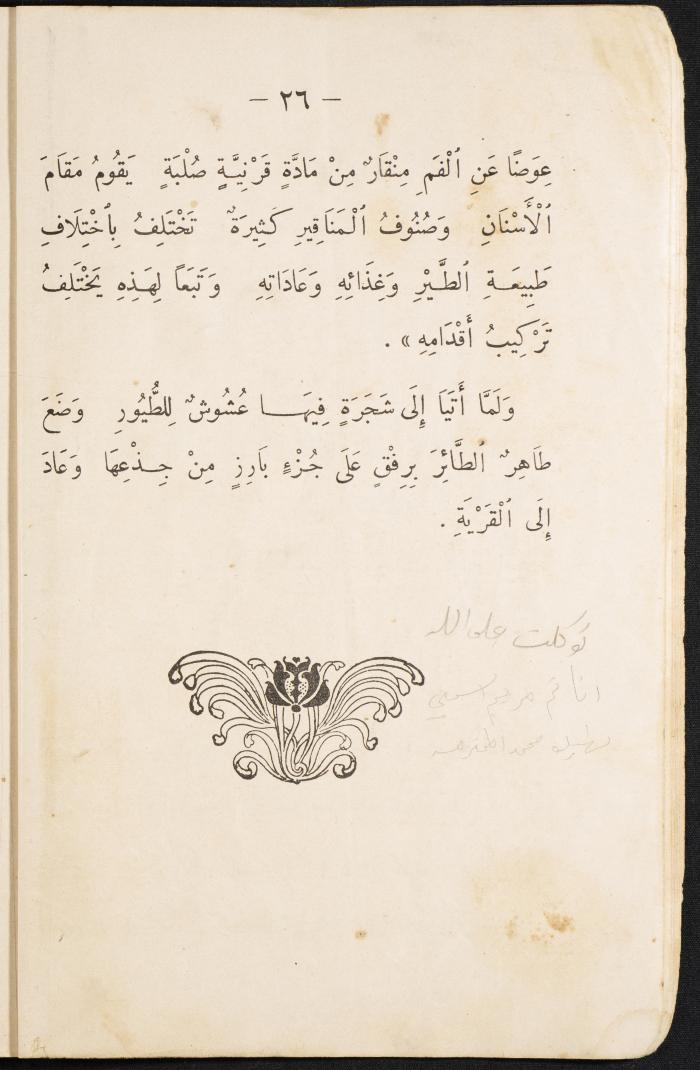 – ٢٦ –
عِوَضًا عَنِ ٱلْفَمِ مِنْقَارٌ مِنْ مَادَّةٍ قَرْنِيَّةٍ صُلْبَةٍ يَقُومُ مَقَامَ
ٱلْأَسْنَانِ وَصُنُوفُ ٱلْمَنَاقِيرِ كَثِيرَةٌ تَخْتَلِفُ بِٱخْتِلَافِ
طَبِيعَةِ ٱلطَّيْرِ وَغِذَائِهِ وَعَادَاتِهِ وَتَبَعًا لِهَذِهِ يَخْتَلِفُ
تَرْكِيبُ أَقْدَامِهِ » .
وَلَمَّا أَتَيَا إِلَى شَجَرَةٍ فِيهَا عُشُوشٌ لِلطُّيُورِ وَضَعَ
طَاهِرٌ ٱلطَّائِرَ بِرِفْقٍ عَلَى جُزْءٍ بَارِزٍ مِنْ جِذْعِهَا وَعَادَ
إِلَى ٱلْقَرْيَةِ .
توكلت على الله
انا
محمد